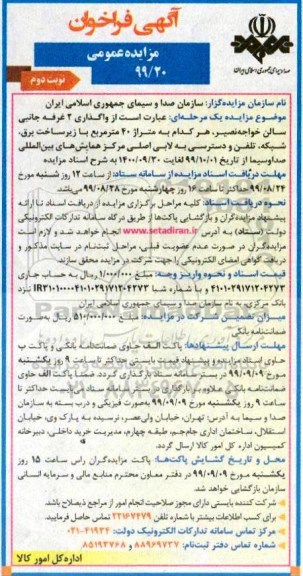 آگهی فراخوان
مزایده عمومی
۹۹/۲۰
نوبت دوم
صدا و سیمای جمهوری اسلامی ایران
نام سازمان مزایده‌گزار: سازمان صدا و سیمای جمهوری اسلامی ایران
موضوع مزایده یک مرحله‌ای: عبارت است از واگذاری ۲ غرفه جانبی
سالن خواجه‌نصیر، هر کدام به متراژ ۴۰ مترمربع با زیرساخت برق،
شبکه، تلفن و دسترسی به لابی اصلی مرکز همایش‌های بین‌المللی
صداوسیما از تاریخ ۹۹/۱۰/۰۱ لغایت ۱۴۰۰/۰۹/۳۰ به شرح اسناد مزایده
مهلت دریافت اسناد مزایده از سامانه ستاد: از ساعت ۱۲ روز شنبه مورخ
۹۹/۰۸/۲۴ حداکثر تا ساعت ۱۶ روز چهارشنبه مورخ ۹۹/۰۸/۲۸ می‌باشد.
نحوه دریافت اسناد: کلیه مراحل برگزاری مزایده از دریافت اسناد تا ارائه
پیشنهاد مزایده‌گران و بازگشایی پاکت‌ها از طریق درگاه سامانه تدارکات الکترونیکی
دولت (ستاد) به آدرس www.setadiran.ir انجام خواهد شد و لازم است
مزایده‌گران در صورت عدم عضویت قبلی، مراحل ثبت‌نام در سایت مذکور و
دریافت گواهی امضای الکترونیکی را جهت شرکت در مزایده محقق سازند.
قیمت اسناد و نحوه واریز وجه: مبلغ ۱/۰۰۰/۰۰۰ ریال به حساب جاری
۴۱۰۱۰۲۹۱۷۱۲۰۴۲۷۳ و با شماره شبا IR۳۱۰۱۰۰۰۰۴۱۰۱۰۲۹۱۷۱۲۰۴۲۷۳ نزد
بانک مرکزی، به نام سازمان صدا و سیمای جمهوری اسلامی ایران
میزان تضمین شرکت در مزایده: مبلغ ۵۱۰/۰۰۰/۰۰۰ ریال به‌صورت
ضمانت‌نامه بانکی
مهلت ارسال پیشنهادها: پاکت الف حاوی ضمانت‌نامه بانکی و پاکت ب
حاوی اسناد مزایده و پیشنهاد قیمت بایستی حداکثر تا ساعت ۹ روز یکشنبه
مورخ ۹۹/۰۹/۰۹ در سامانه ستاد بارگذاری گردد. ضمناً پاکت الف حاوی
ضمانت‌نامه بانکی علاوه بر بارگذاری در سامانه ستاد می‌بایست حداکثر تا
ساعت ۹ روز یکشنبه مورخ ۹۹/۰۹/۰۹ به‌صورت فیزیکی و درب بسته به سازمان
صدا و سیما به آدرس: تهران، خیابان ولی‌عصر، نرسیده به پارک وی، خیابان
استقلال، ساختمان اداری جام‌جم، طبقه چهارم، مدیریت خرید داخلی، دبیرخانه
کمیسیون اداره کل امور کالا ارسال گردد.
محل و تاریخ گشایش پاکت‌ها: پاکت مزایده‌گران راس ساعت ۱۵ روز
یکشنبه مورخ ۹۹/۰۹/۰۹ در دفتر معاون محترم منابع مالی و سرمایه انسانی
سازمان بازگشایی خواهد شد.
شرکت کننده بایستی دارای مجوز صلاحیت انجام امور از مراجع ذیصلاح باشد.
برای کسب اطلاعات بیشتر با شماره تلفن ۲۲۱۶۷۴۷۹ تماس حاصل فرمایید.
مرکز تماس سامانه تدارکات الکترونیک دولت: ۴۱۹۳۴-۰۲۱
و شماره تماس دفتر ثبت‌نام: ۸۸۹۶۹۷۳۷ و ۸۵۱۹۳۷۶۸
اداره کل امور کالا